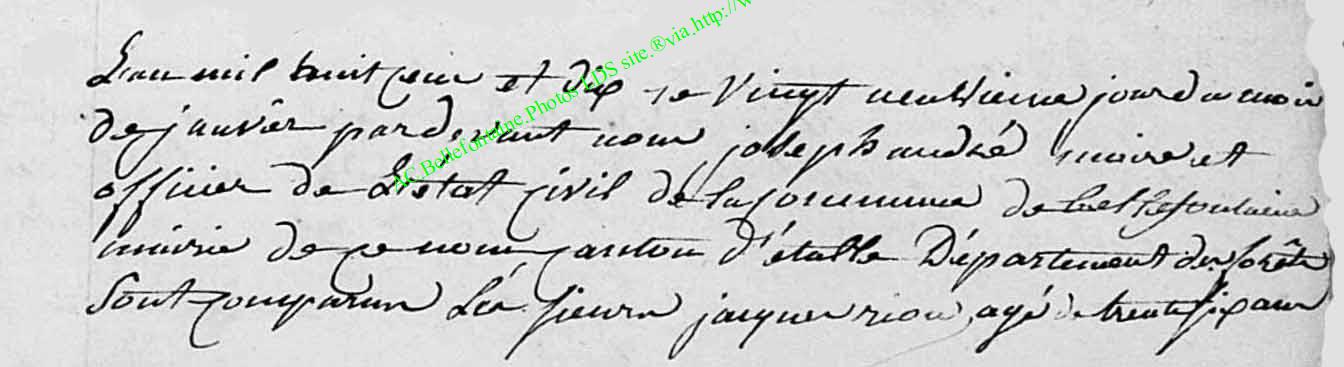 L'an mil huit cen et dix le vingt neuvieme jour du mois
de janvier pardevant nous joseph andré maire et
officier de L'état civil de la commune de bellefontaine
mairie de ce nom canton d'étalle Département des forêts
sont comparus Les sieurs jacques rion agé de trente six ans
AC.Bellefontaine.Photos LDS site.®via.http://w